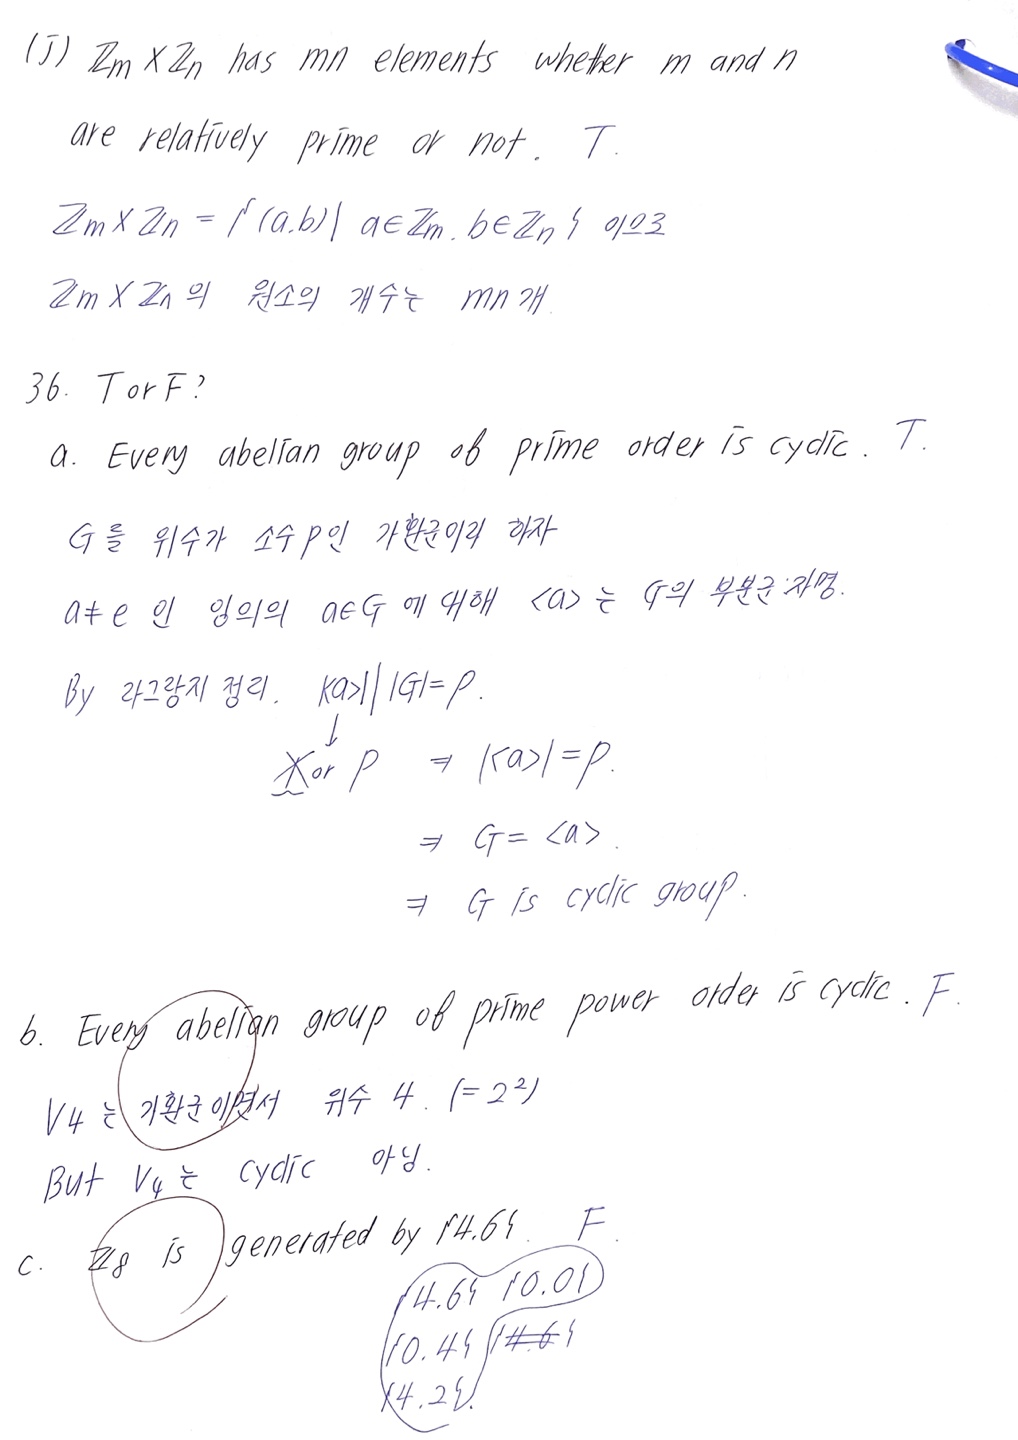 (j) ℤm × ℤn has mn elements whether m and n
are relatively prime or not. T.
ℤm × ℤn = {(a,b)| a∈ℤm, b∈ℤn} 이므로
ℤm × ℤn 의 원소의 개수는 mn개.
36. T or F?
a. Every abelian group of prime order is cyclic. T.
G를 위수가 소수 p인 가환군이라 하자
a≠e 인 임의의 a∈G 에 대해 <a>는 G의 부분군:자명.
By 라그랑지 정리. |<a>| | |G|=p.
↓
1 or p ⇒ |<a>|=p.
⇒ G = <a>.
⇒ G is cyclic group.
b. Every abelian group of prime power order is cyclic. F.
V4는 가환군이면서 위수 4. (=2²)
But V4는 cyclic 아님.
c. ℤ8 is generated by {4.6}. F.
{4.6} {0.0}
{0.4} {4.6}
{4.2}.